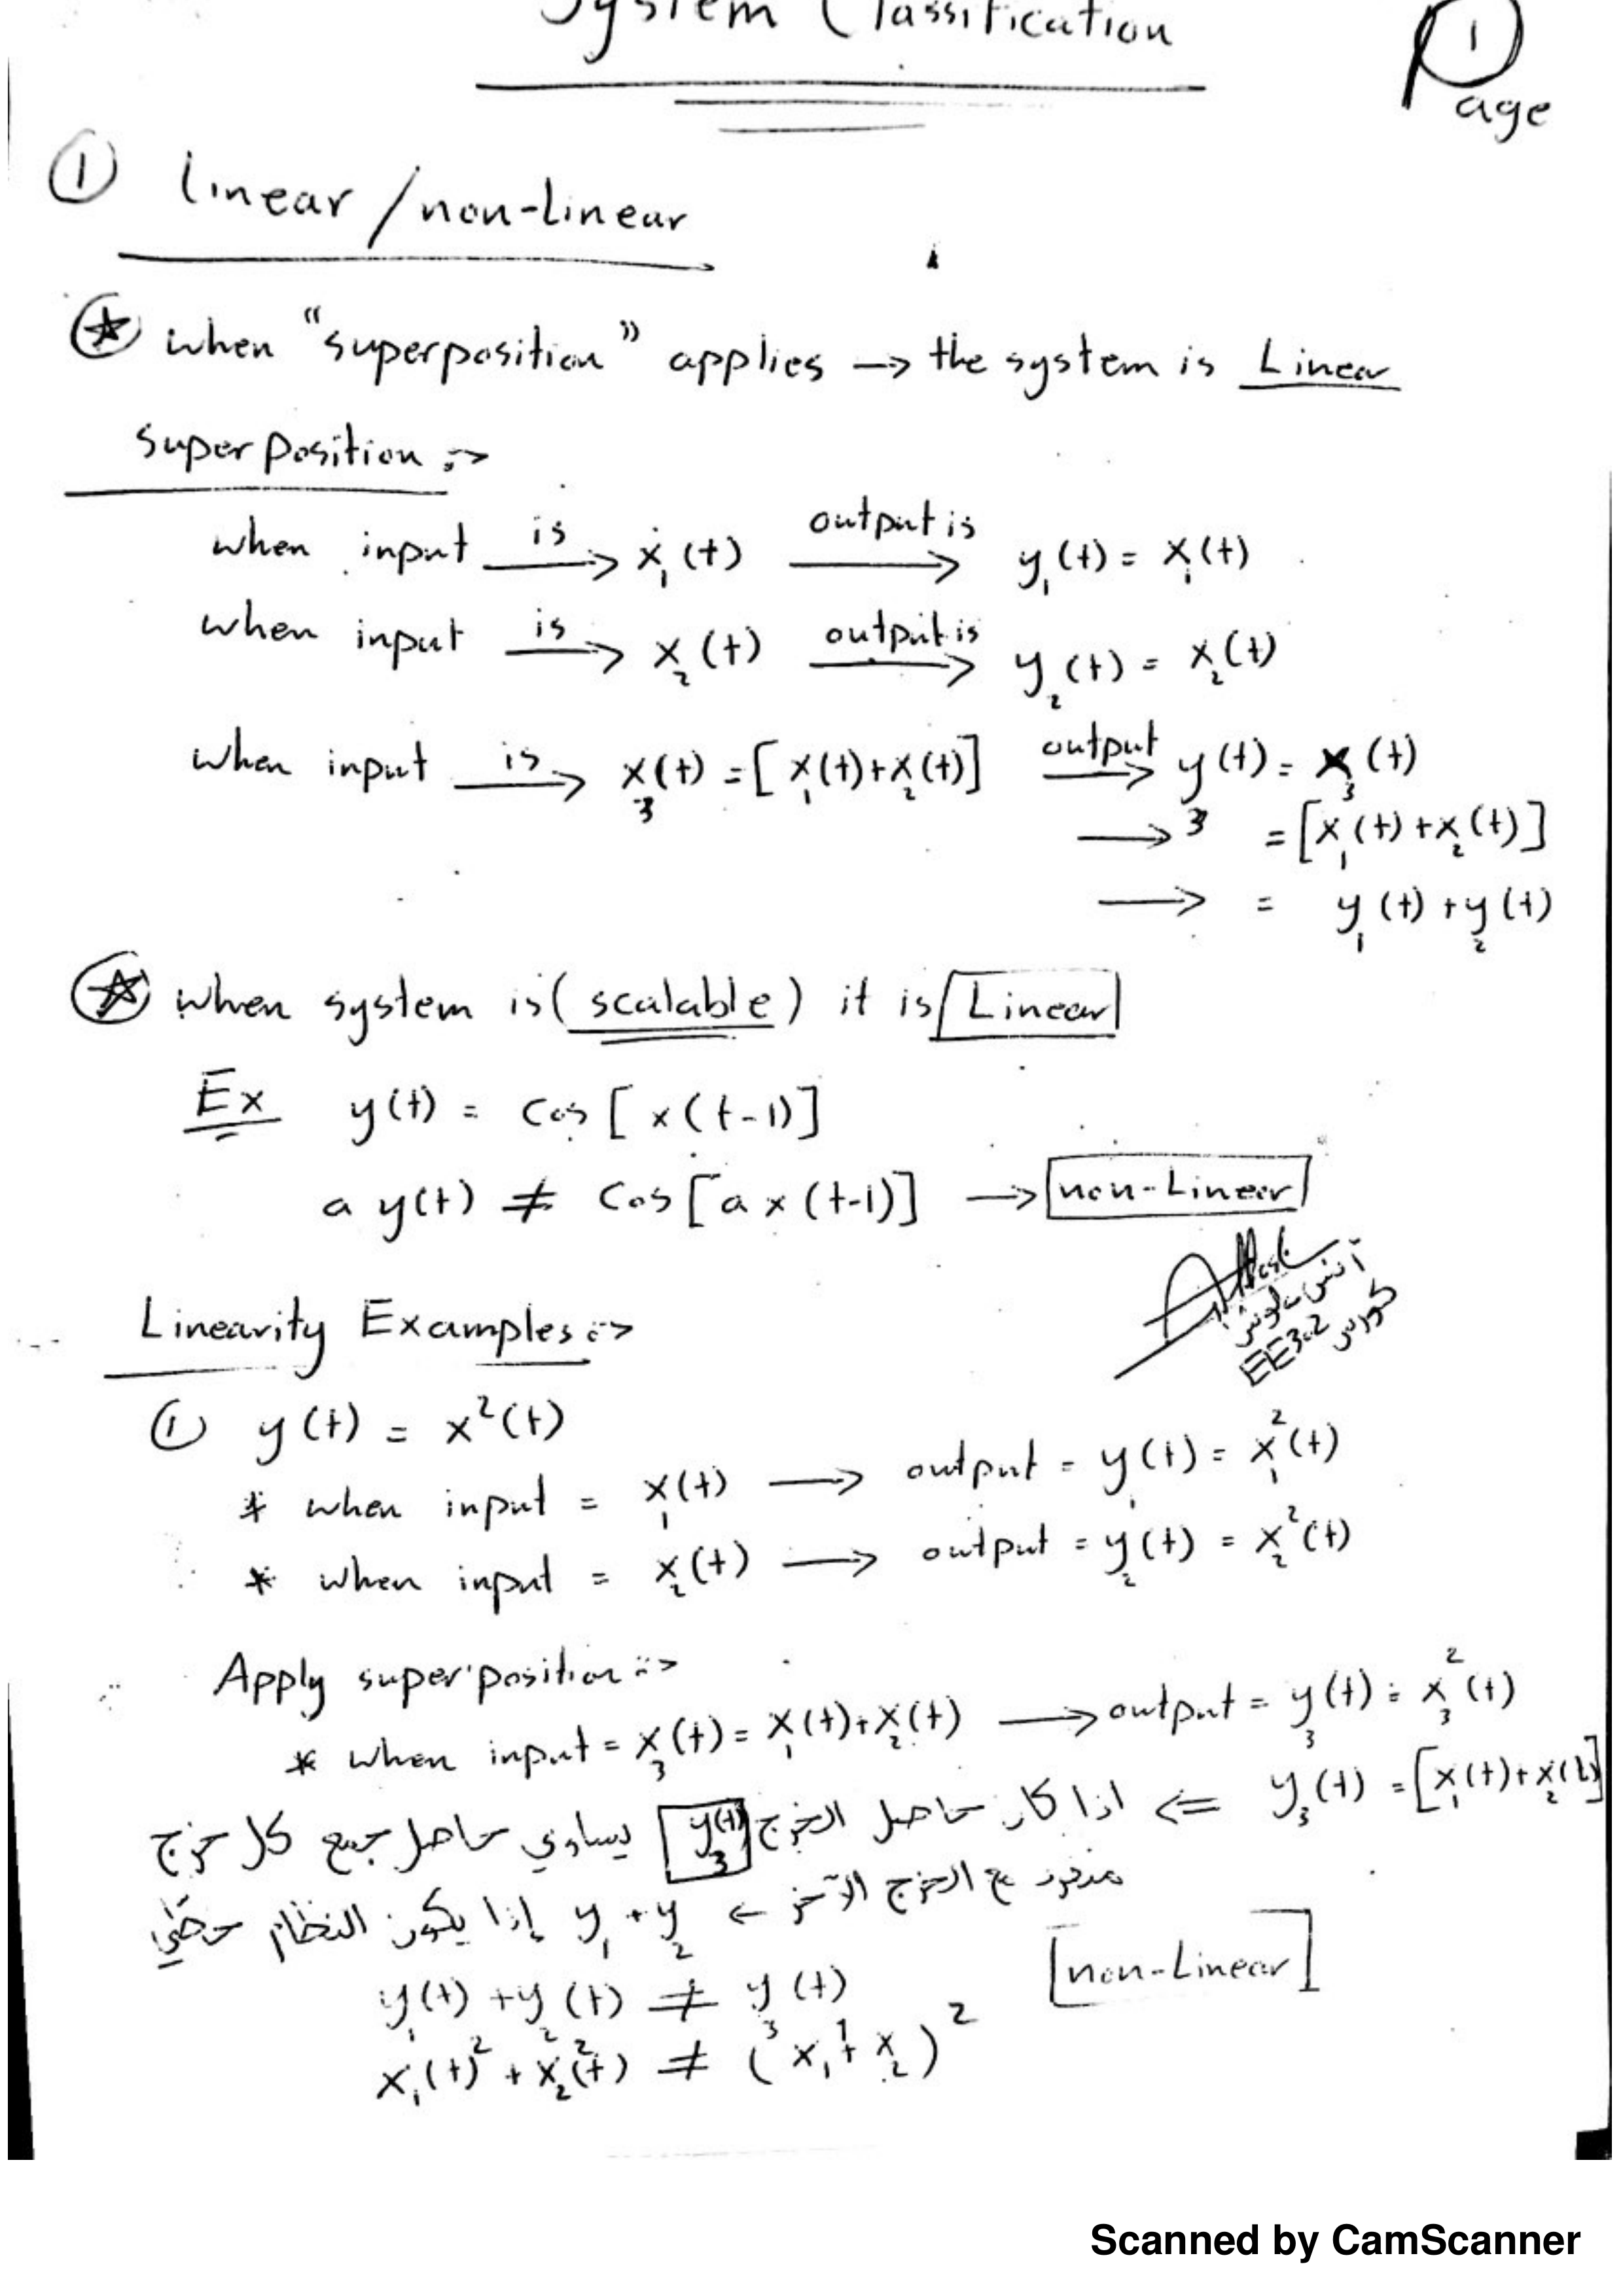 System Classification
Page 1
① Linear / non-Linear
⍟ when "superposition" applies → the system is Linear
superPosition :->
when input is → x₁(t) output is → y₁(t) = x₁(t)
when input is → x₂(t) output is → y₂(t) = x₂(t)
when input is → x₃(t) = [x₁(t)+x₂(t)] output → y₃(t) = x₃(t)
→ = [x₁(t)+x₂(t)]
→ = y₁(t) + y₂(t)
⍟ when system is (scalable) it is Linear
Ex y(t) = Cos [x(t-1)]
a y(t) ≠ Cos [a x(t-1)] → non-Linear
EE302 كورس
Linearity Examples :->
① y(t) = x²(t)
* when input = x₁(t) → output = y₁(t) = x₁²(t)
* when input = x₂(t) → output = y₂(t) = x₂²(t)
Apply superposition :->
* when input = x₃(t) = x₁(t)+x₂(t) → output = y₃(t) = x₃²(t)
y₃(t) = [x₁(t)+x₂(t)]
⇐ اذا كان حاصل الخرج y₃(t) يساوي حاصل جمع كل خرج
منفرد مع الخرج الآخر ← y₁ + y₂ إذا يكون النظام خطي
y₁(t) + y₂(t) ≠ y₃(t) [non-Linear]
x₁(t)² + x₂²(t) ≠ (x₁ + x₂)²
Scanned by CamScanner